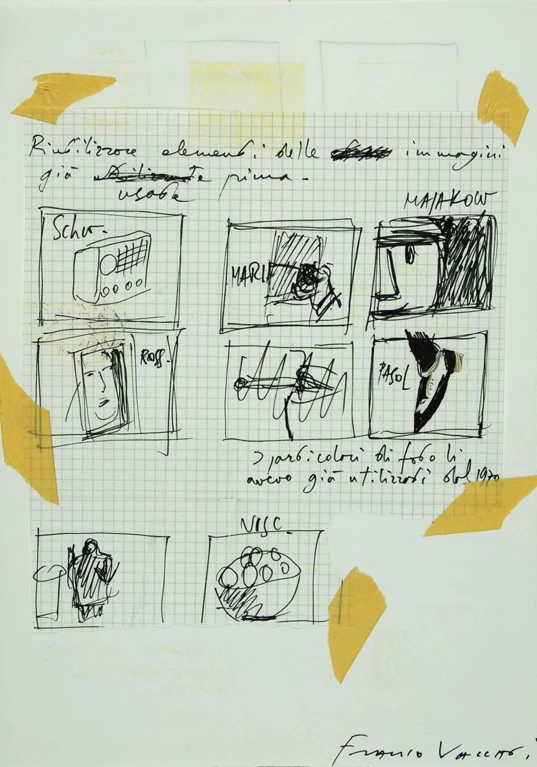 Riutilizzare elementi delle immagini
già usate prima -
MAJAKOW
MARI
PASOL
particolari di foto li
avevo già utilizzati dal 1970
NISC.
Franco Vaccari